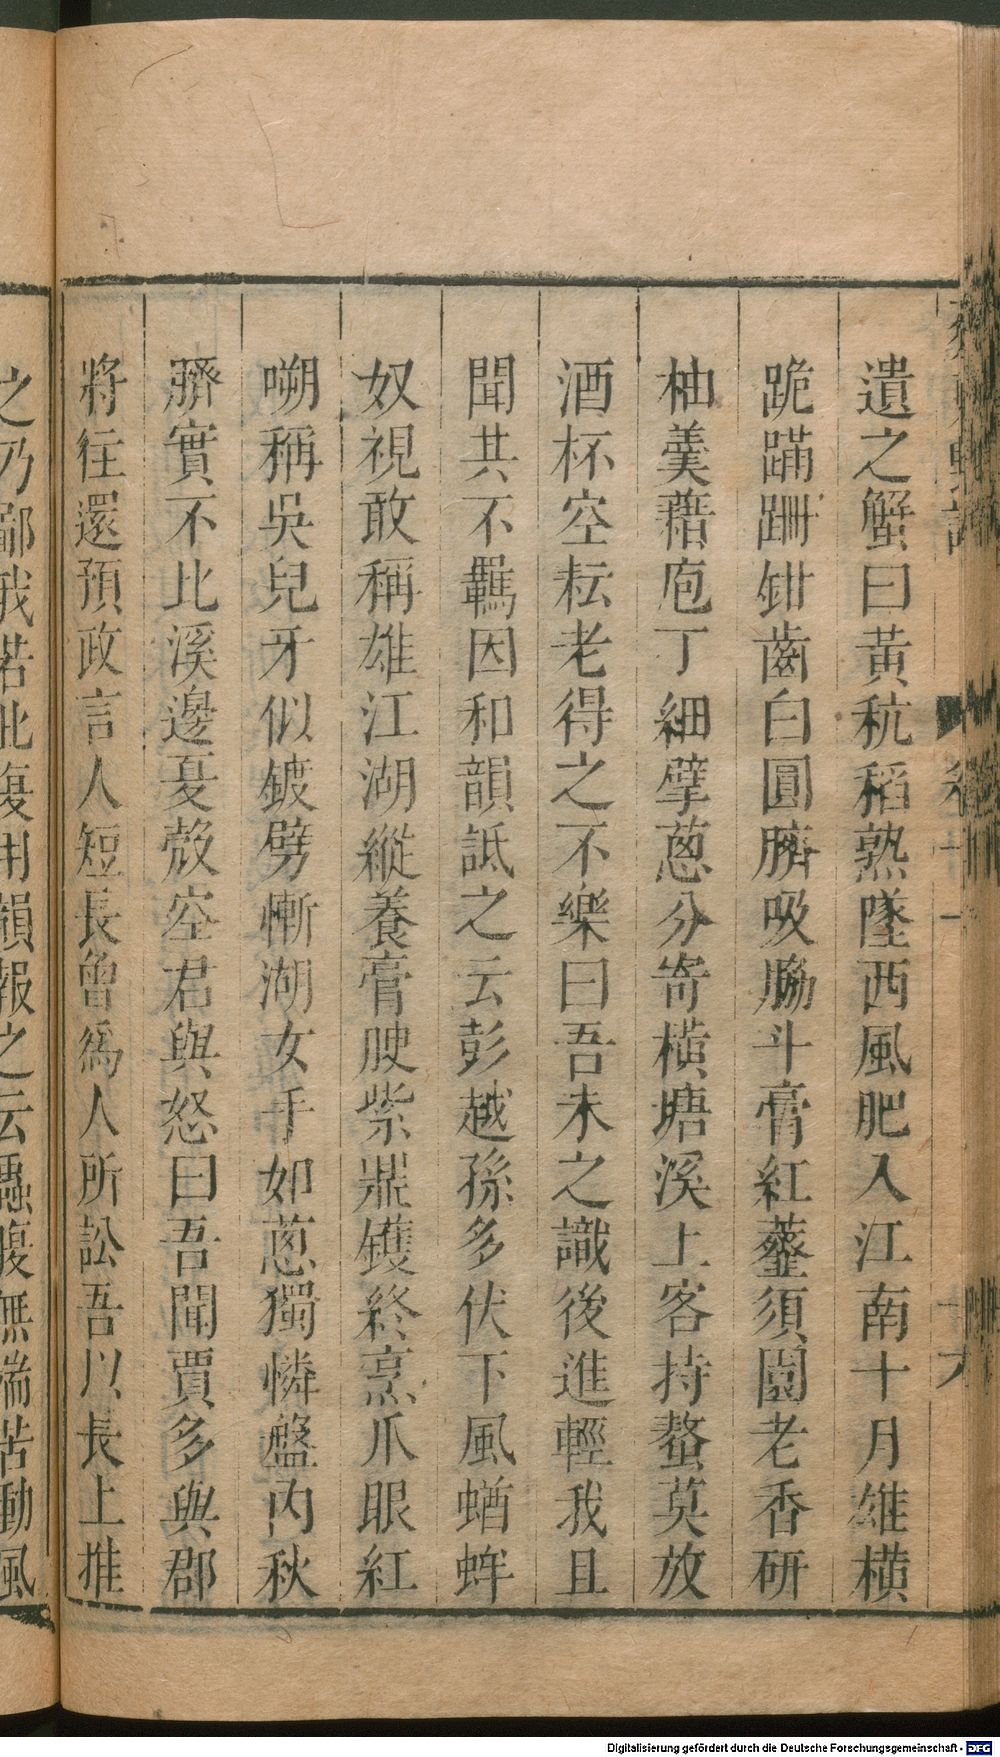 遺之蟹曰黃秔稻熟墜西風肥入江南十月雄橫
跪蹣跚鉗齒白圓臍吸脇斗膏紅虀須園老香研
柚羹藉庖丁細擘蔥分寄橫塘溪上客持螯莫放
酒杯空耘老得之不樂曰吾未之識後進輕我且
聞其不羈因和韻詆之云彭越孫多伏下風蝤蛑
奴視敢稱雄江湖縱養膏腴紫鼎鑊終烹爪眼紅
嘲稱吳兒牙似鍍劈慚湖女手如蔥獨憐盤內秋
臍實不比溪邊夏殼空君與怒曰吾聞賈多與郡
將往還預政言人短長曾爲人所訟吾以長上推
之乃鄙我若此復用韻報之云蟲腹無端苦動風
卷十一
Digitalisierung gefördert durch die Deutsche Forschungsgemeinschaft - DFG